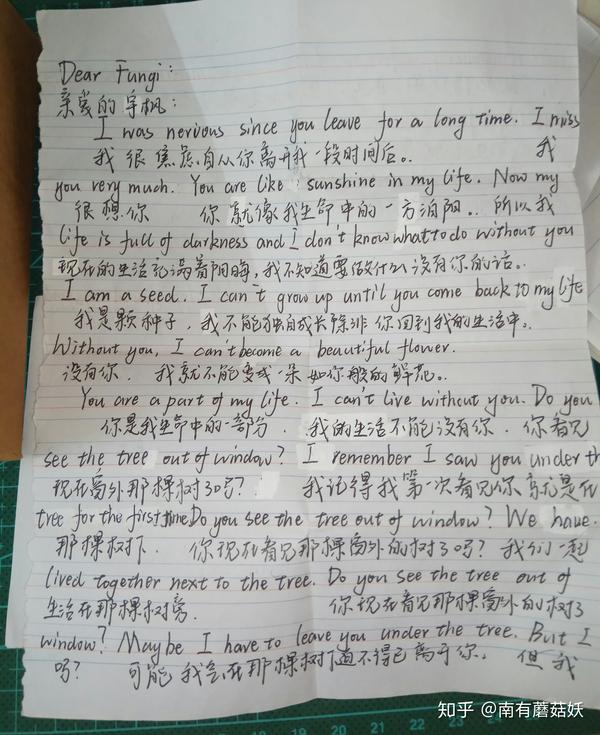 Dear Fungi:
亲爱的宇枫:
I was nervious since you leave for a long time. I miss
我很焦虑自从你离开我一段时间后。 我
you very much. You are like sunshine in my life. Now my
很想你 你就像我生命中的一方泊阳。 所以我
life is full of darkness and I don't know what to do without you
现在的生活充满着阴晦,我不知道要做什么没有你的话。
I am a seed. I can't grow up until you come back to my life
我是颗种子,我不能独自成长除非你回到我的生活中。
Without you, I can't become a beautiful flower.
没有你,我就不能变成一朵如你般的鲜花。
You are a part of my life. I can't live without you. Do you
你是我生命中的一部分,我的生活不能没有你,你看见
see the tree out of window? I remember I saw you under th
现在窗外那棵树了吗? 我记得我第一次看见你就是在
tree for the first time. Do you see the tree out of window? We have
那棵树下. 你现在看见那棵窗外的树了吗? 我们一起
lived together next to the tree. Do you see the tree out of
生活在那棵树旁. 你现在看见那棵窗外的树了
window? Maybe I have to leave you under the tree. But I
吗? 可能我会在那棵树下迫不得已离开你, 但我
知乎 @南有蘑菇妖